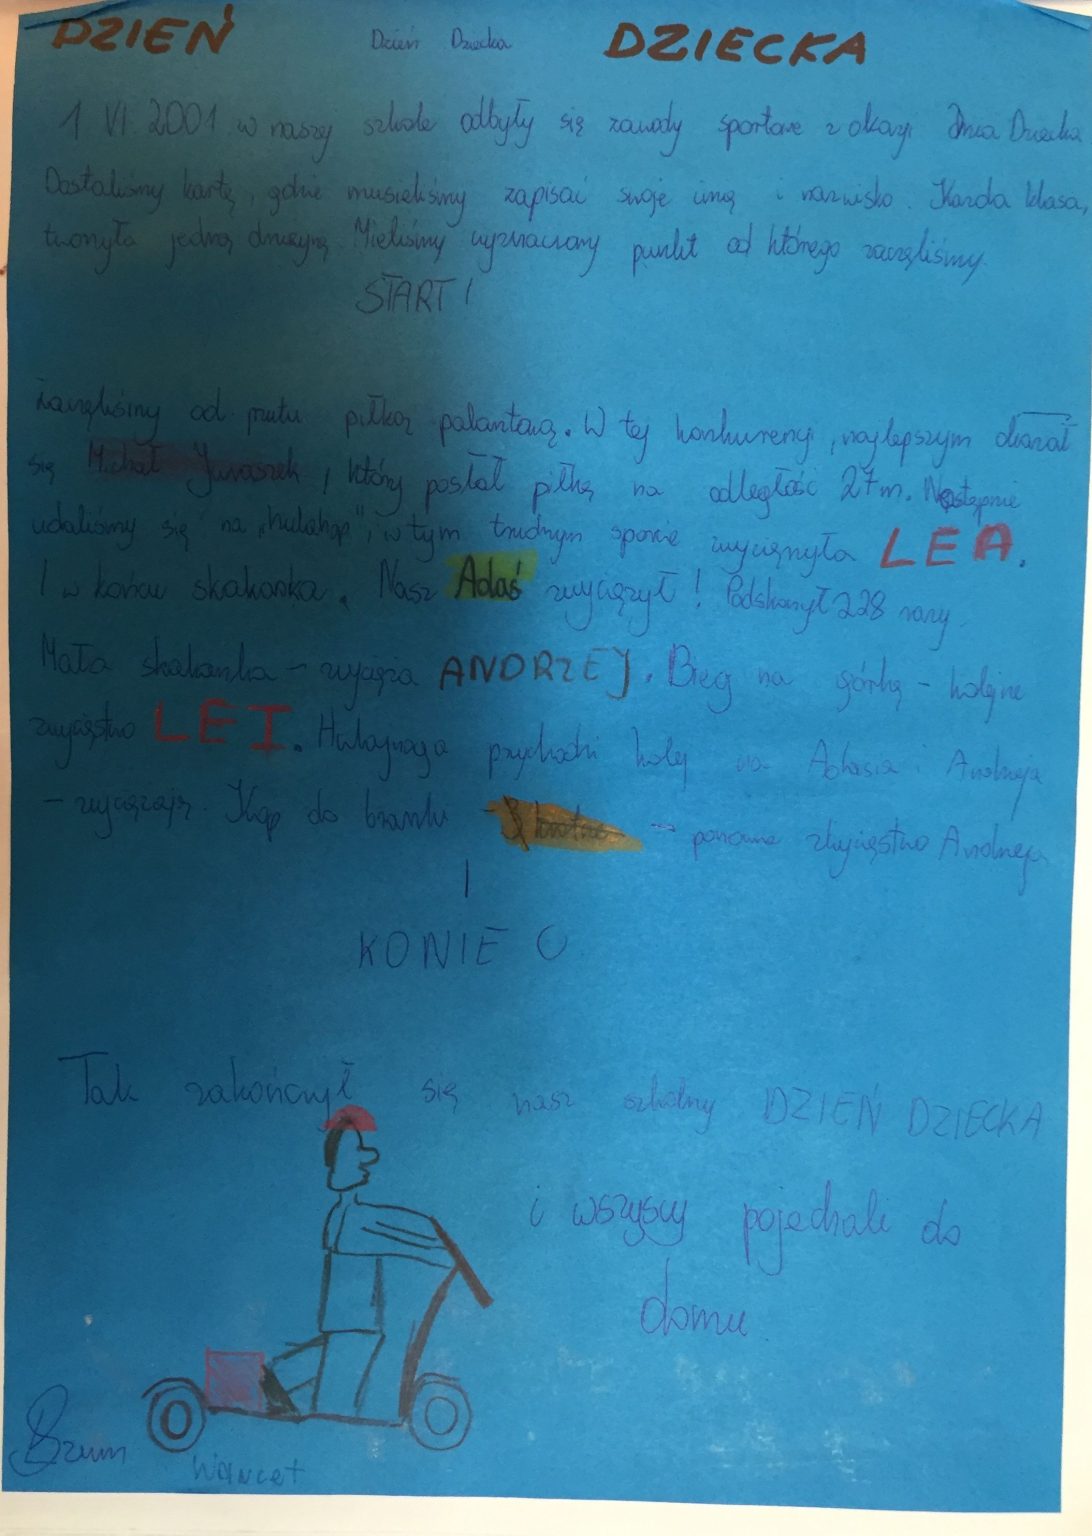 DZIEŃ Dzień Dziecka DZIECKA
1 VI 2001 w naszej szkole odbyły się zawody sportowe z okazji Dnia Dziecka
Dostaliśmy kartę, gdzie musieliśmy zapisać swoje imię i nazwisko. Każda klasa,
tworzyła jedną drużynę. Mieliśmy wyznaczony punkt od którego zaczęliśmy.
START!
Zaczęliśmy od rzutu piłką palantową. W tej konkurencji, najlepszym okazał
się Michał, który posłał piłkę na odległość 27m. Następnie
udaliśmy się na „hulahop", w tym trudnym sporcie zwyciężyła LEA.
I w końcu skakanka. Nasz Adaś zwyciężył! Podskoczył 228 razy.
Mała skakanka – zwycięża ANDRZEJ. Bieg na górkę – kolejne
zwycięstwo LEI. Hulajnoga przychodzi kolej na Adasia i Andrzeja
– zwyciężają. Kop do bramki – – ponowne zwycięstwo Andrzeja
!
KONIEC
Tak zakończył się nasz szkolny DZIEŃ DZIECKA
i wszyscy pojechali do
domu.
Brum